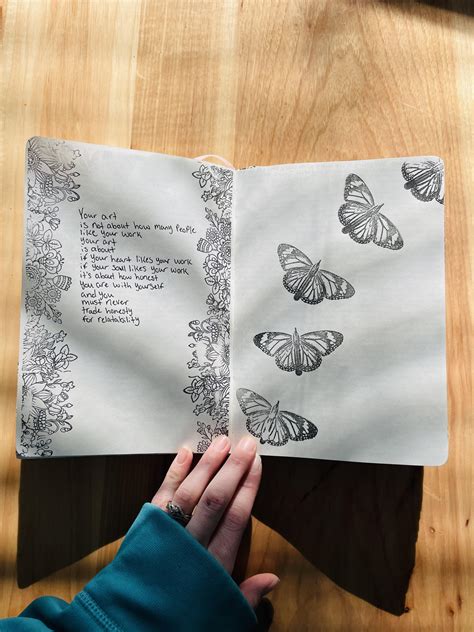 Your art
is not about how many people
like your work
your art
is about
if your heart likes your work
if your soul likes your work
it's about how honest
you are with yourself
and you
must never
trade honesty
for relatability